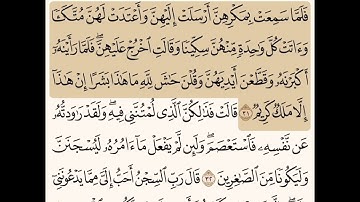 فَلَمَّا سَمِعَتْ بِمَكْرِهِنَّ أَرْسَلَتْ إِلَيْهِنَّ وَأَعْتَدَتْ لَهُنَّ مُتَّكَـًٔا
وَءَاتَتْ كُلَّ وَٰحِدَةٍ مِّنْهُنَّ سِكِّينًا وَقَالَتِ ٱخْرُجْ عَلَيْهِنَّ ۖ فَلَمَّا رَأَيْنَهُۥٓ
أَكْبَرْنَهُۥ وَقَطَّعْنَ أَيْدِيَهُنَّ وَقُلْنَ حَٰشَ لِلَّهِ مَا هَٰذَا بَشَرًا إِنْ هَٰذَآ
إِلَّا مَلَكٌ كَرِيمٌ ٣١ قَالَتْ فَذَٰلِكُنَّ ٱلَّذِى لُمْتُنَّنِى فِيهِ ۖ وَلَقَدْ رَٰوَدتُّهُۥ
عَن نَّفْسِهِۦ فَٱسْتَعْصَمَ ۖ وَلَئِن لَّمْ يَفْعَلْ مَآ ءَامُرُهُۥ لَيُسْجَنَنَّ
وَلَيَكُونًا مِّنَ ٱلصَّٰغِرِينَ ٣٢ قَالَ رَبِّ ٱلسِّجْنُ أَحَبُّ إِلَىَّ مِمَّا يَدْعُونَنِىٓ